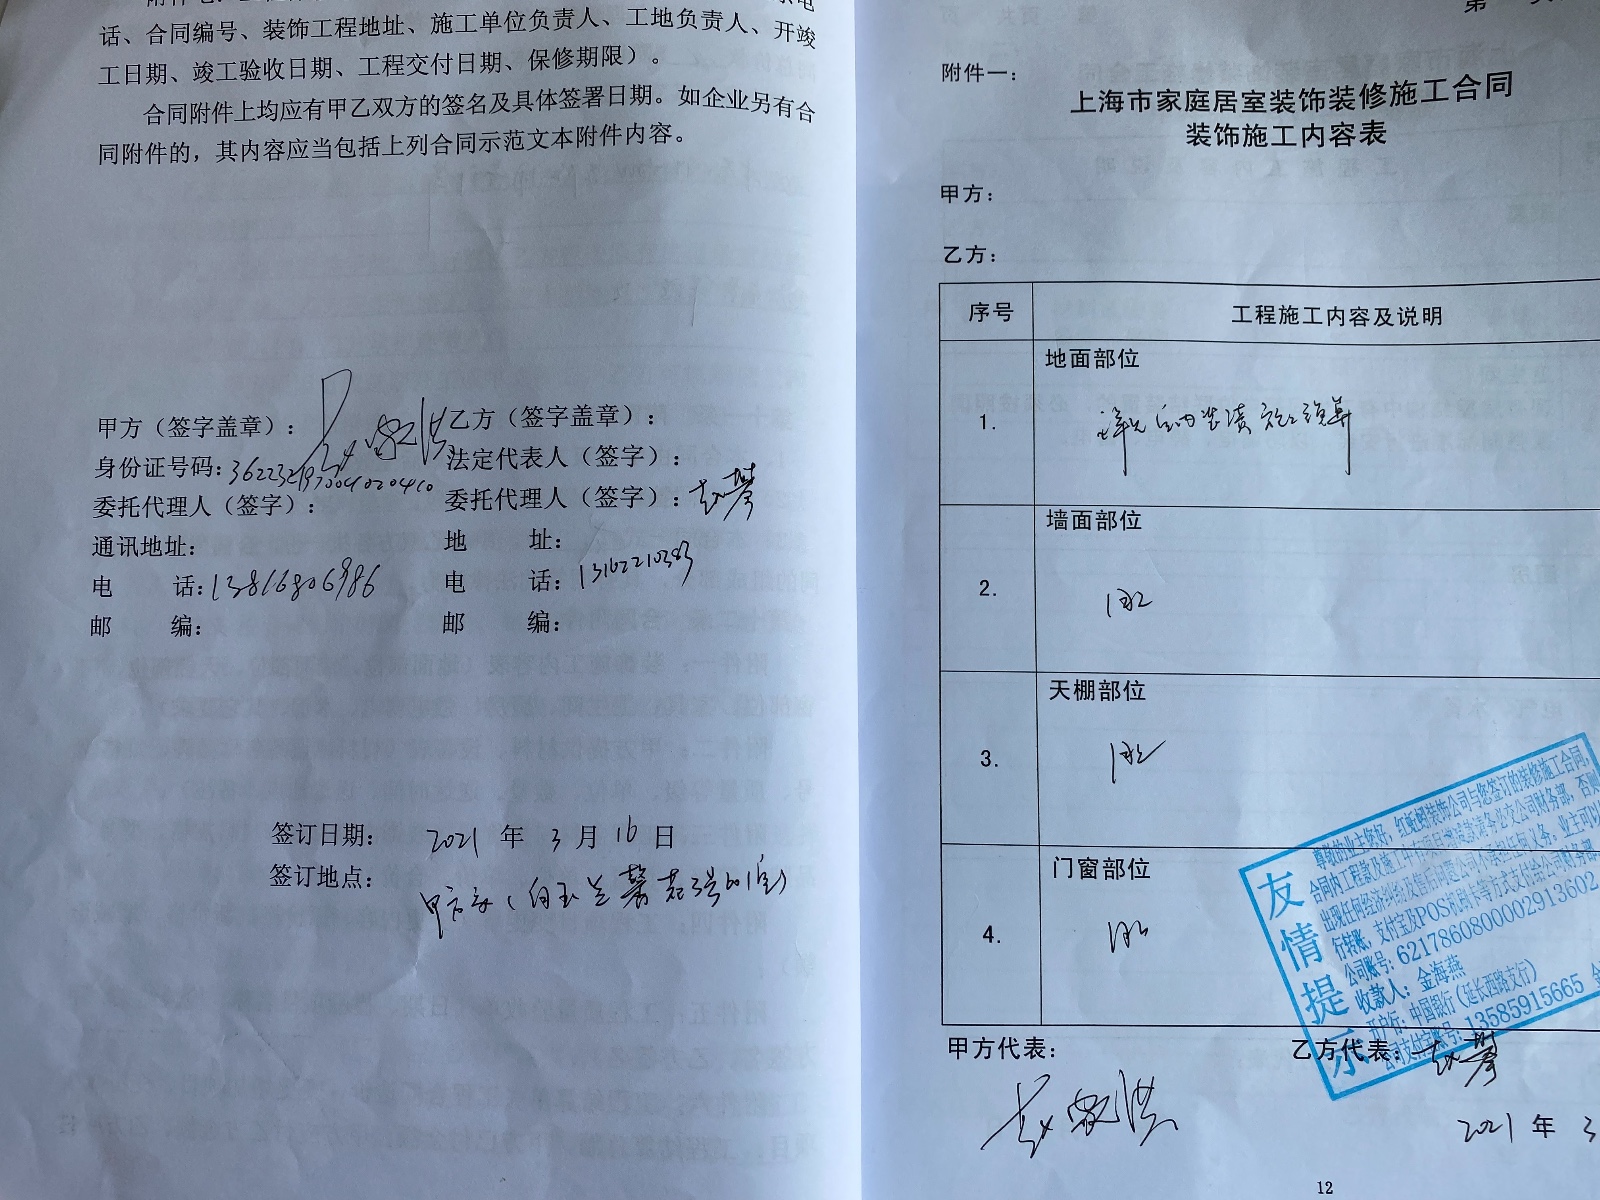 话、合同编号、装饰工程地址、施工单位负责人、工地负责人、开竣
工日期、竣工验收日期、工程交付日期、保修期限）。
合同附件上均应有甲乙双方的签名及具体签署日期。如企业另有合
同附件的，其内容应当包括上列合同示范文本附件内容。
甲方（签字盖章）：
身份证号码：
委托代理人（签字）：
通讯地址：
电 话：13816806986
邮 编：
乙方（签字盖章）：
法定代表人（签字）：
委托代理人（签字）：赵攀
地 址：
电 话：13162210383
邮 编：
签订日期： 2021 年 3 月 16 日
签订地点： 甲方家（白玉兰馨苑3号601室）
附件一：
上海市家庭居室装饰装修施工合同
装饰施工内容表
甲方：
乙方：
序号 工程施工内容及说明
1. 地面部位
详见室内装潢施工预算
2. 墙面部位
同上
3. 天棚部位
同上
4. 门窗部位
同上
友情提示
尊敬的业主您好，红蚂蚁装饰公司与您签订的装修施工合同，
公司账号：6217860800002913602
收款人：金海燕
开户行：中国银行（延长西路支行）
公司支付宝账号：13585915665
甲方代表：
乙方代表：赵攀
2021 年 3
12